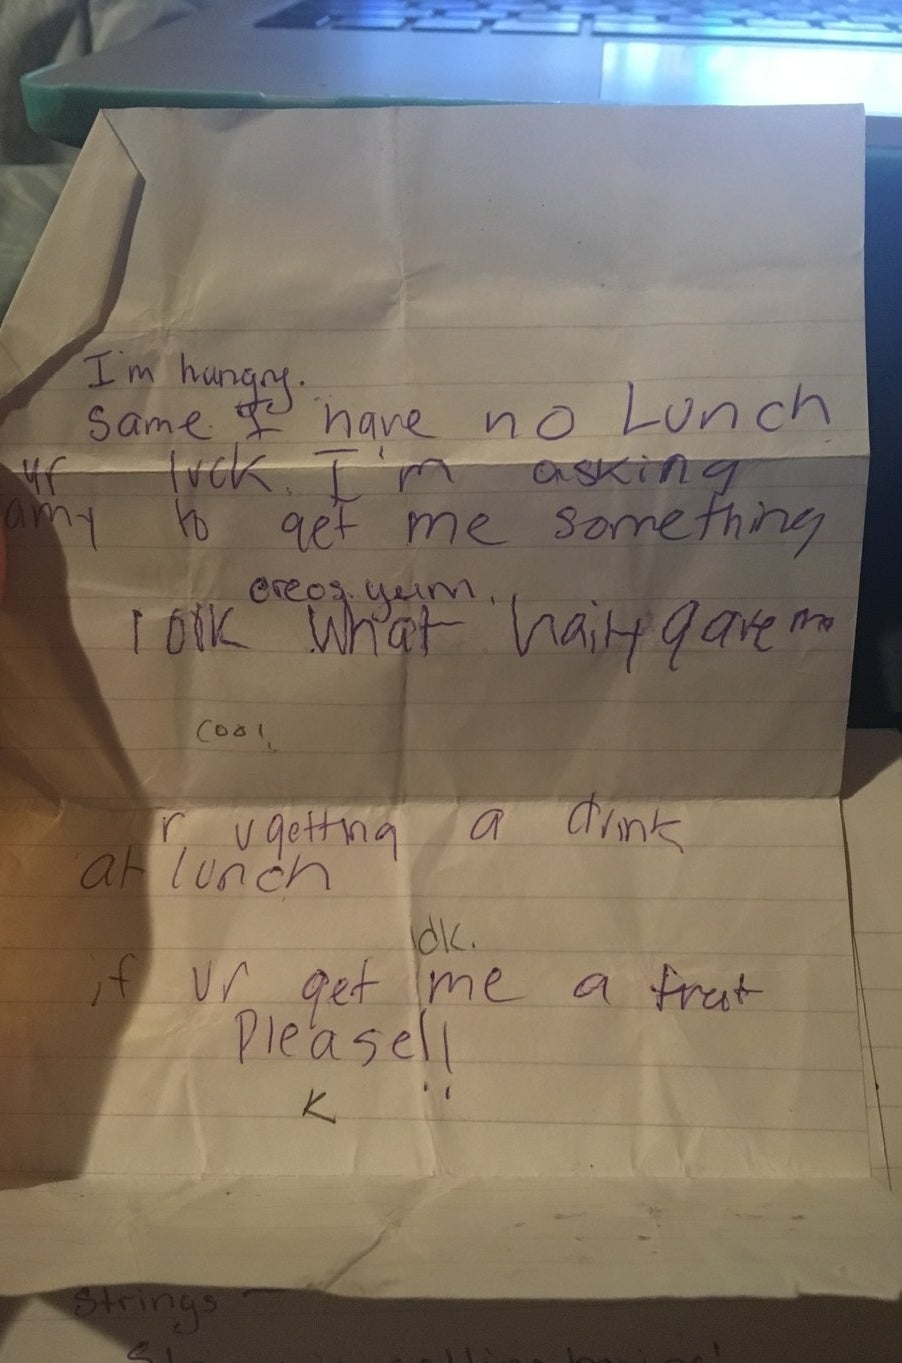 I'm hungry.
same. I have no Lunch
ur luck. I'm asking
amy to get me something
oreos. yum.
look what haity gave me
cool.
r u getting a drink
at lunch
idk.
if ur get me a frut
Please!!
K
Strings